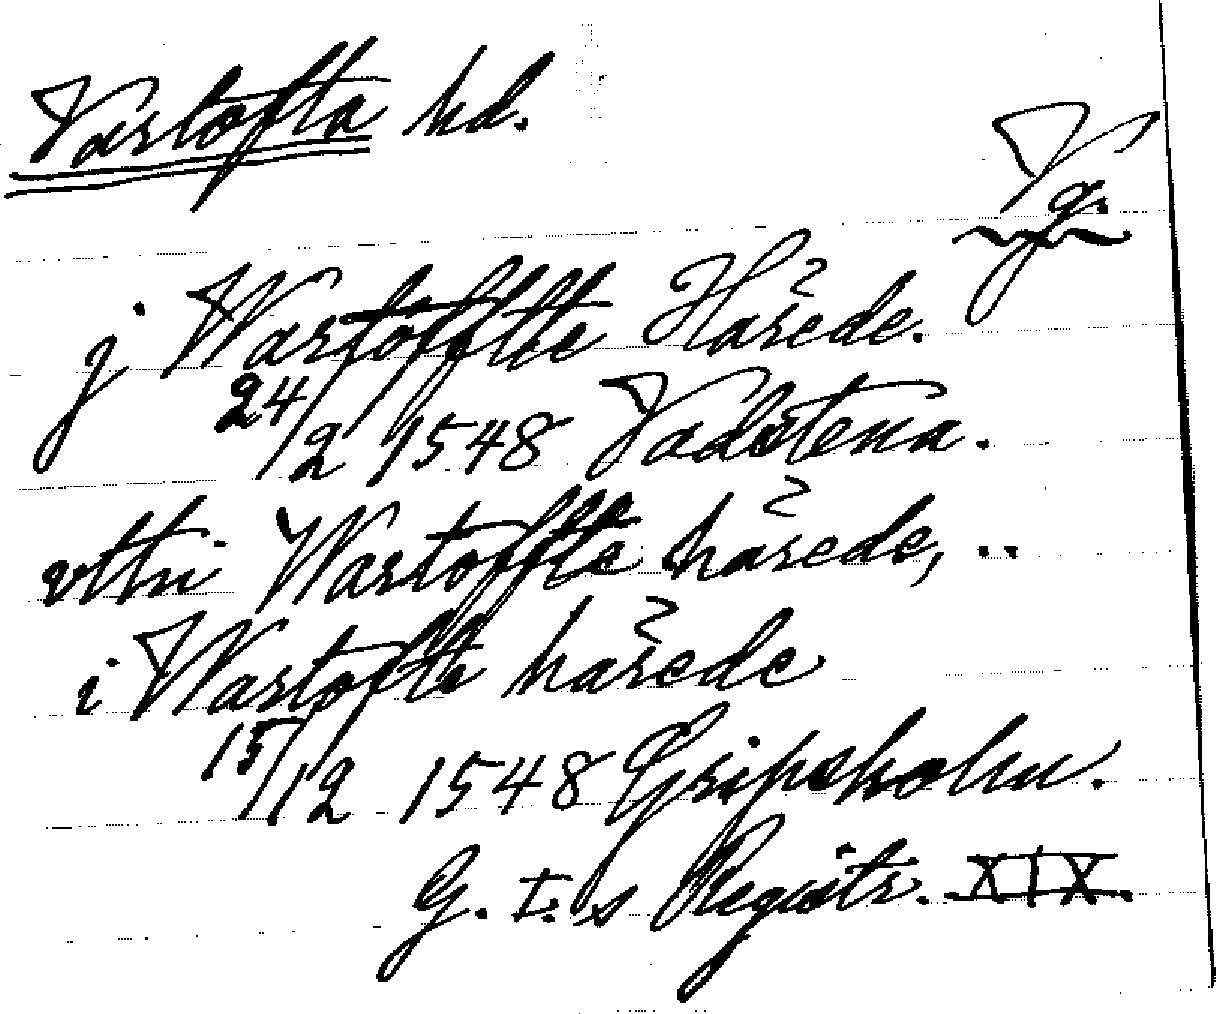 Vartofta hd.
Vg.
j Wartofftte Härede.
24/2 1548 Vadstena.
vthi Wartoffte härede, ..
i Wartofte härede
15/12 1548 Gripsholm.
G. I:s Registr. XIX.